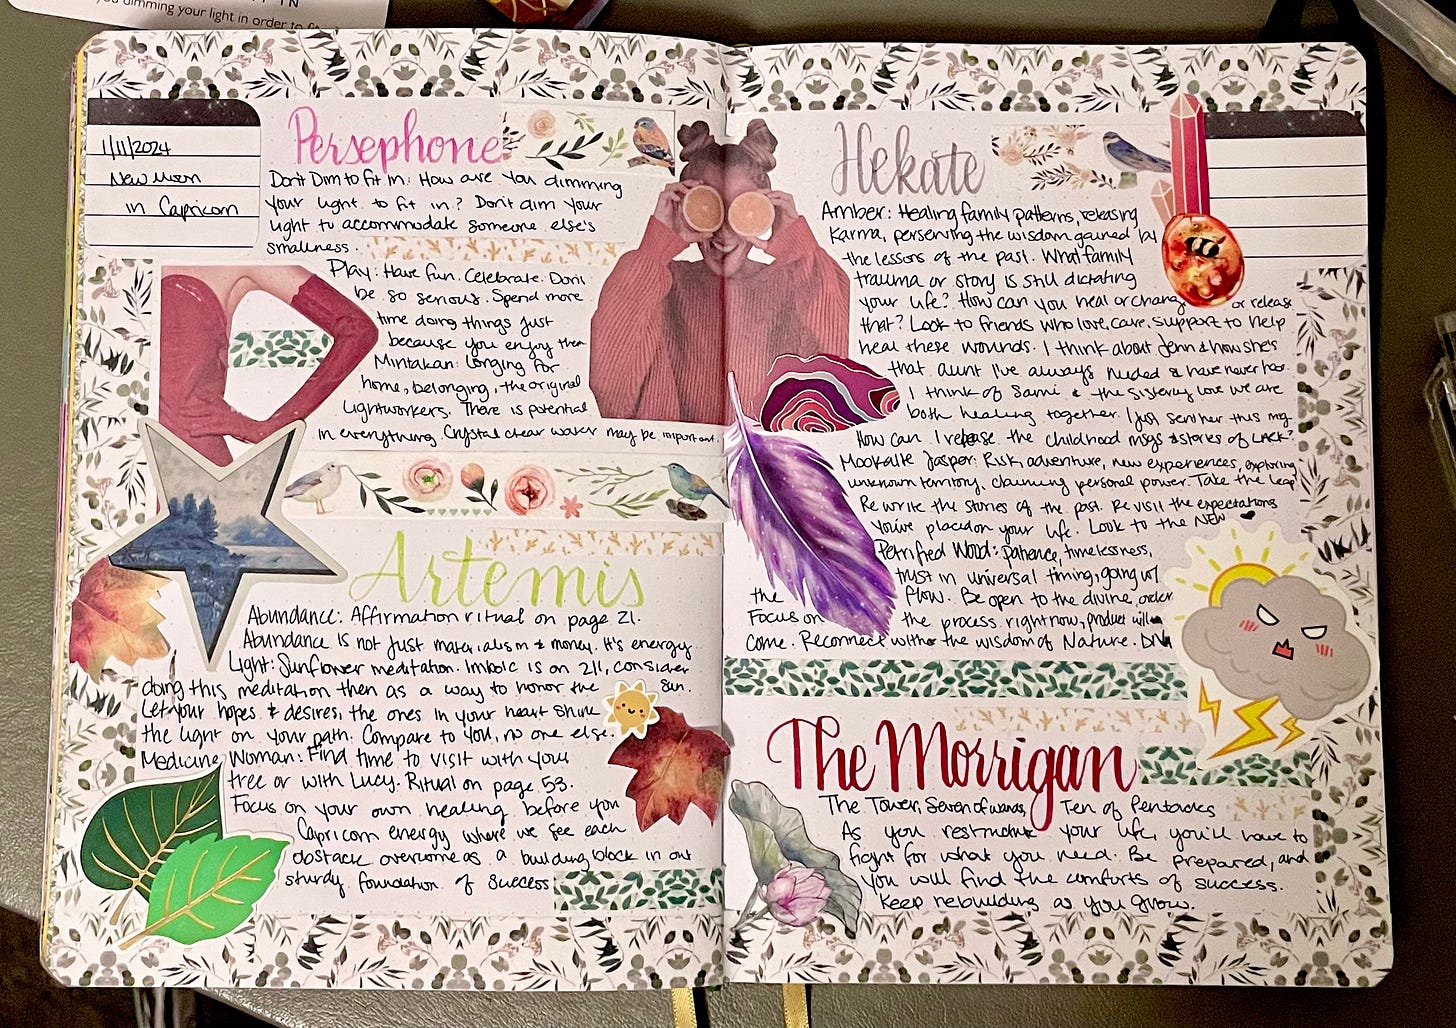 IN
you dimming your light in order to fit
1/11/2024
New Moon
in Capricorn
Persephone
Don't Dim to fit in: How are you dimming
your light to fit in? Don't dim your
light to accommodate someone else's
smallness.
Play: Have fun. Celebrate. Don't
be so serious. Spend more
time doing things just
because you enjoy them
Mintakan: Longing for
home, belonging, the original
lightworkers. There is potential
in everything. Crystal clear water may be important.
Artemis
Abundance: Affirmation ritual on page 21.
Abundance is not just materialism & money. It's energy
Light: Sunflower meditation. Imbolc is on 2/1, consider
doing this meditation then as a way to honor the sun.
Let your hopes & desires, the ones in your heart shine
the light on your path. Compare to you, no one else.
Medicine Woman: Find time to visit with your
tree or with Lucy. Ritual on page 53.
Focus on your own healing before you
Capricorn energy where we see each
obstacle overcome as a building block in our
sturdy foundation of success
Hekate
Amber: Healing family patterns, releasing
Karma, perserving the wisdom gained by
the lessons of the past. What family
trauma or story is still dictating
your life? How can you heal or change or release
that? Look to friends who love, care, support to help
heal these wounds. I think about Jenn & how she's
that aunt I've always needed & have never had.
I think of Sami & the sisterly love we are
both healing together. I just sent her this msg
How can I release the childhood msgs & stories of LACK?
Mookaite Jasper: Risk, adventure, new experiences, exploring
unknown territory, claiming personal power. Take the leap
Rewrite the stories of the past. Revisit the expectations
you've placed on your life. Look to the NEW
Petrified Wood: patience, timelessness,
trust in universal timing, going w/
the flow. Be open to the divine order
Focus on the process right now, product will
come. Reconnect with the wisdom of Nature.
The Morrigan
The Tower, Seven of wands, Ten of Pentacles
As you restructure your life, you'll have to
fight for what you need. Be prepared, and
you will find the comforts of success.
Keep rebuilding as you grow.